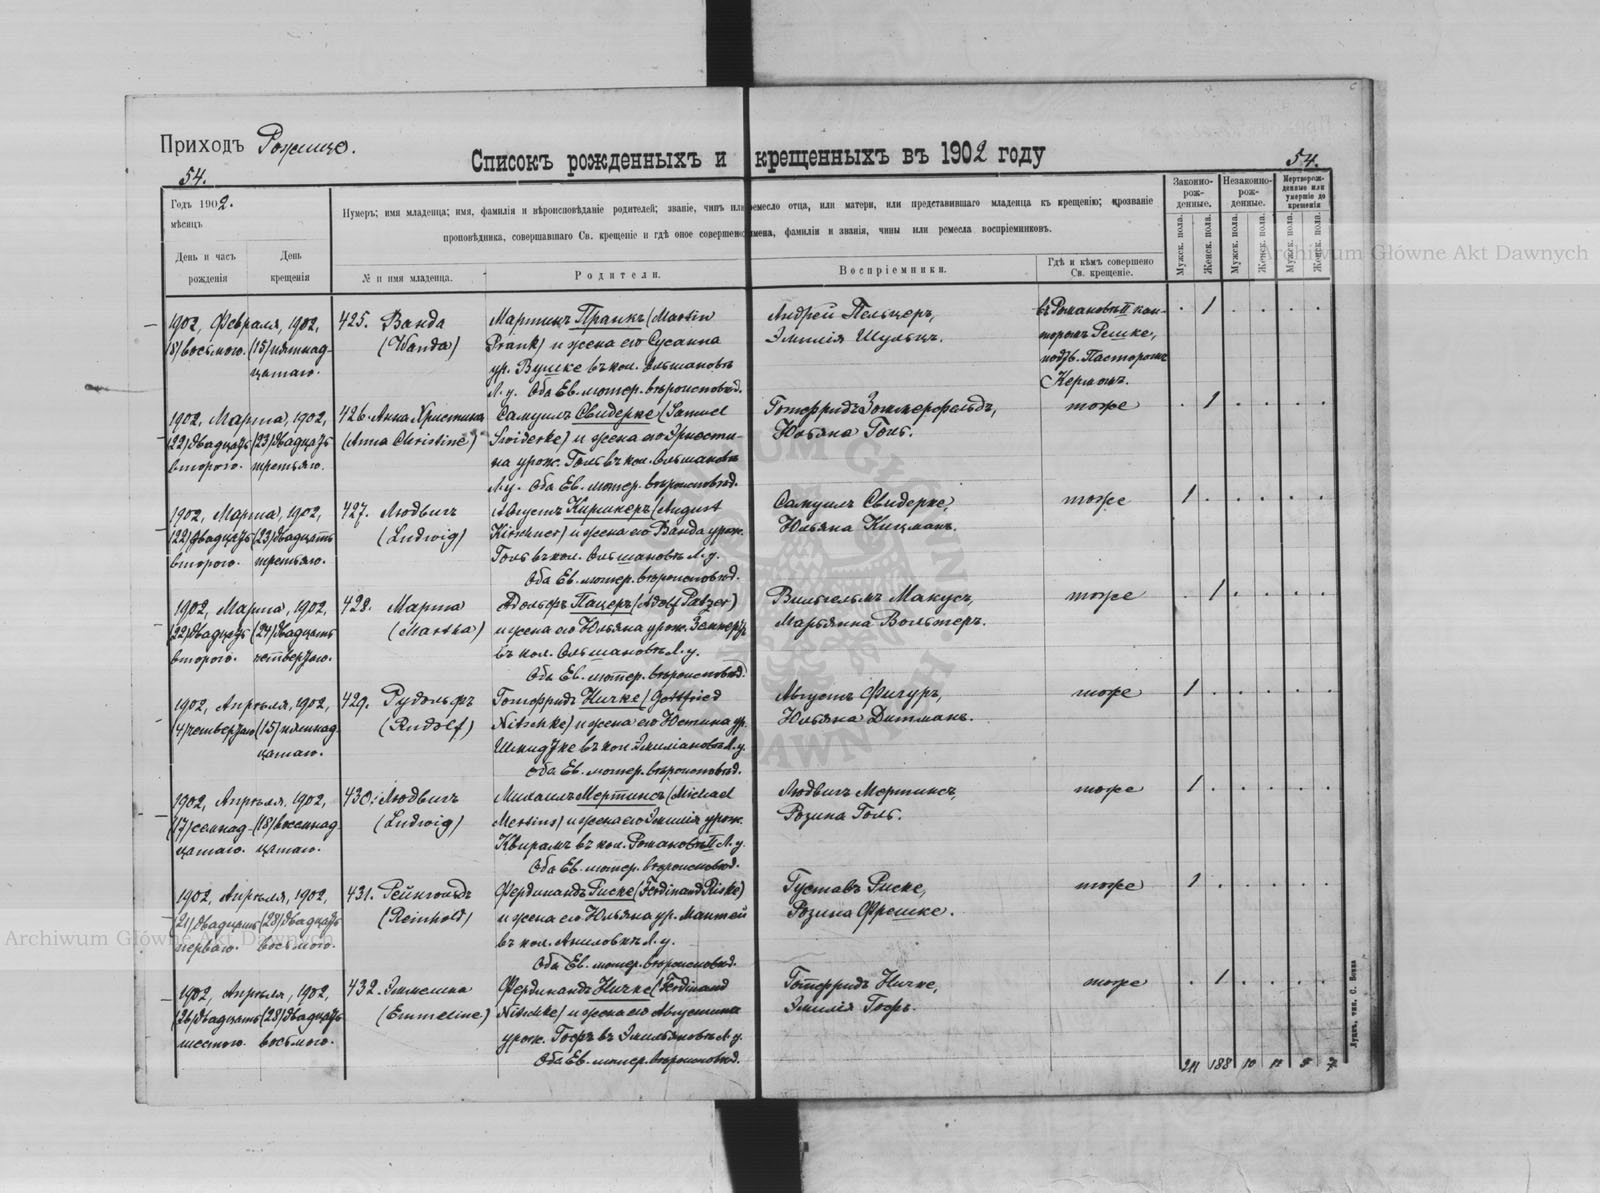 Приходъ Рожище.
Списокъ рожденныхъ и крещенныхъ въ 1902 году
54.
54.
Годъ 1902.
мѣсяцъ
День и часъ рожденія
День крещенія
Нумеръ; имя младенца; имя, фамилія и вѣроисповѣданіе родителей; званіе, чинъ или ремесло отца, или матери, или представившаго младенца къ крещенію; прозваніе
проповѣдника, совершавшаго Св. крещеніе и гдѣ оное совершено имена, фамиліи и званія, чины или ремесла воспріемниковъ.
№ и имя младенца.
Родители.
Воспріемники.
Гдѣ и кѣмъ совершено Св. крещеніе.
Законно-рож-денные.
Незаконно-рож-денные.
Мертворож-денные или умершіе до крещенія
Мужск. пола.
Женск. пола.
Мужск. пола.
Женск. пола.
Мужск. пола.
Женск. пола.
1902, Февраля, 1902,
(8) восьмого. (15) пятнад-
цатаго.
425. Ванда
(Wanda)
Мартинъ Пранкъ (Martin
Prank) и жена его Сусанна
ур. Вушке въ кол. Ольшановкѣ
Л. у. Оба Ев. лютер. вѣроисповѣд.
Андрей Пельцеръ,
Эмилія Шульцъ.
въ Романовкѣ II кан-
торомъ Решке,
подтв. Пасторомъ
Керномъ.
1
1902, Марта, 1902,
(22) двадцать (23) двадцать
второго. третьяго.
426. Анна Христина
(Anna Christine)
Самуилъ Свидерке (Samuel
Swiderke) и жена его Эрнести-
на урож. Голь въ кол. Ольшановкѣ
Л. у. Оба Ев. лютер. вѣроисповѣд.
Готфридъ Зоммерфельдъ,
Юльяна Голь.
тоже
1
1902, Марта, 1902,
(22) двадцать (23) двадцать
второго. третьяго.
427. Людвигъ
(Ludwig)
Августъ Киршнеръ (August
Kirschner) и жена его Ванда урож.
Голь въ кол. Ольшановкѣ Л. у.
Оба Ев. лютер. вѣроисповѣд.
Самуилъ Свидерке,
Юльяна Кицманъ.
тоже
1
1902, Марта, 1902,
(22) двадцать (24) двадцать
второго. четвертаго.
428. Марта
(Martha)
Адольфъ Пацеръ (Adolf Patzer)
и жена его Юльяна урож.
въ кол. Ольшановкѣ Л. у.
Оба Ев. лютер. вѣроисповѣд.
Вильгельмъ Макусъ,
Марьянна Вольтеръ.
тоже
1
1902, Апрѣля, 1902,
(4) четвертаго (15) пятнад-
цатаго.
429. Рудольфъ
(Rudolf)
Готфридъ Ничке (Gottfried
Nitschke) и жена его Юстина ур.
въ кол. Эмиліановкѣ Л. у.
Оба Ев. лютер. вѣроисповѣд.
Августъ Фигуръ,
Юльяна Дитманъ.
тоже
1
1902, Апрѣля, 1902,
(17) семнад- (18) восемнад-
цатаго. цатаго.
430. Людвигъ
(Ludwig)
Михаилъ Мертинсъ (Michael
Mertins) и жена его Эмилія урож.
Квирамъ въ кол. Романовкѣ II Л. у.
Оба Ев. лютер. вѣроисповѣд.
Людвигъ Мертинсъ,
Розина Голь.
тоже
1
1902, Апрѣля, 1902,
(21) двадцать (28) двадцать
перваго. восьмого.
431. Рейнгольдъ
(Reinhold)
Фердинандъ Риске (Ferdinand Riske)
и жена его Юльяна ур. Мантей
въ кол. Л. у.
Оба Ев. лютер. вѣроисповѣд.
Густавъ Риске,
Розина Фрешке.
тоже
1
1902, Апрѣля, 1902,
(26) двадцать (28) двадцать
шестого. восьмого.
432. Эммелина
(Emmeline)
Фердинандъ Ничке (Ferdinand
Nitschke) и жена его Августина
урож. Гофъ въ Эмильяновкѣ Л. у.
Оба Ев. лютер. вѣроисповѣд.
Готфридъ Ничке,
Эмилія Гофъ.
тоже
1
211 188 10 12 5 7
Луцкъ, тип. С. Бокка
Archiwum Główne Akt Dawnych
Archiwum Główne Akt Dawnych